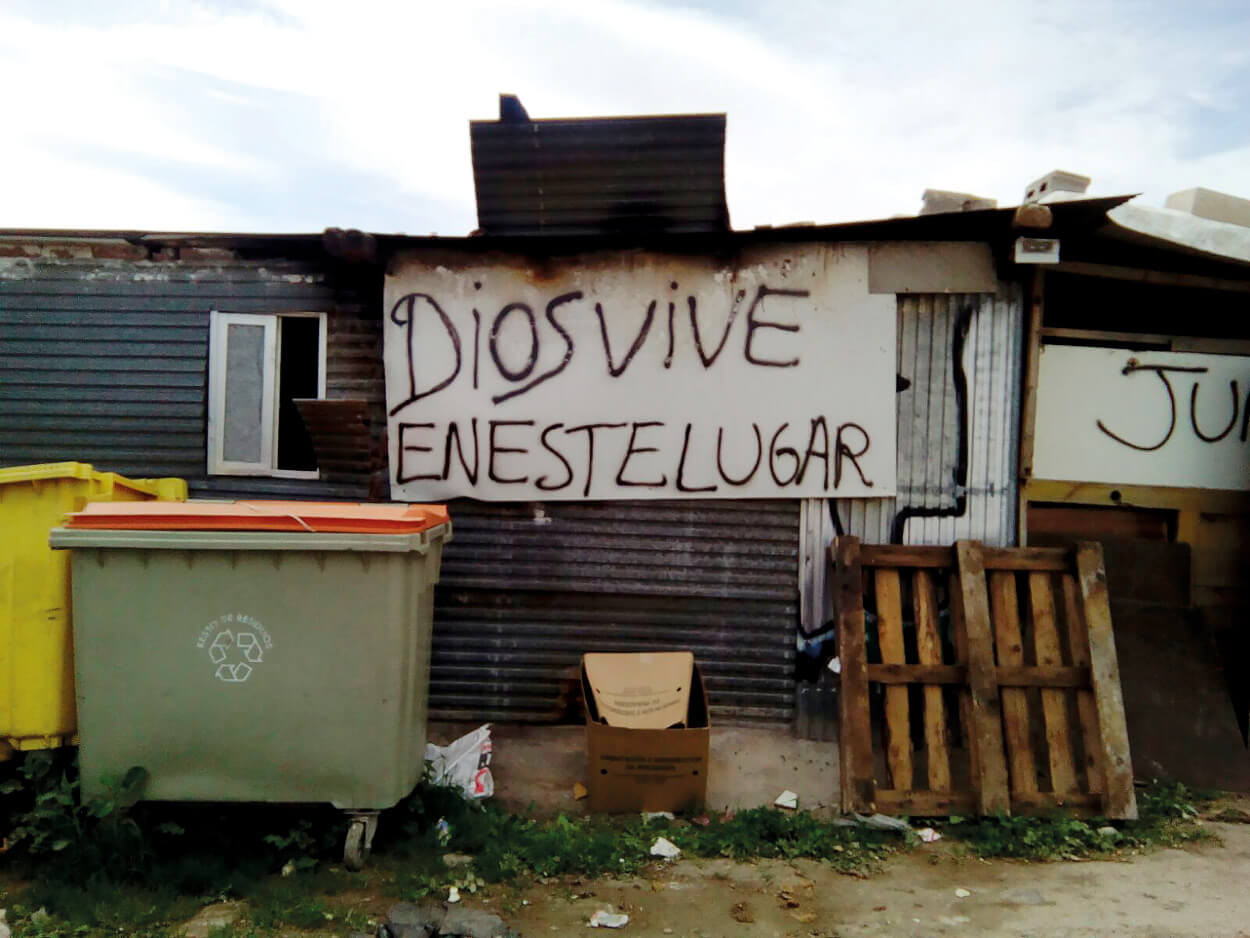 DiOSViVE
ENESTELUGAR
JU
RESTO DE RESIDUOS